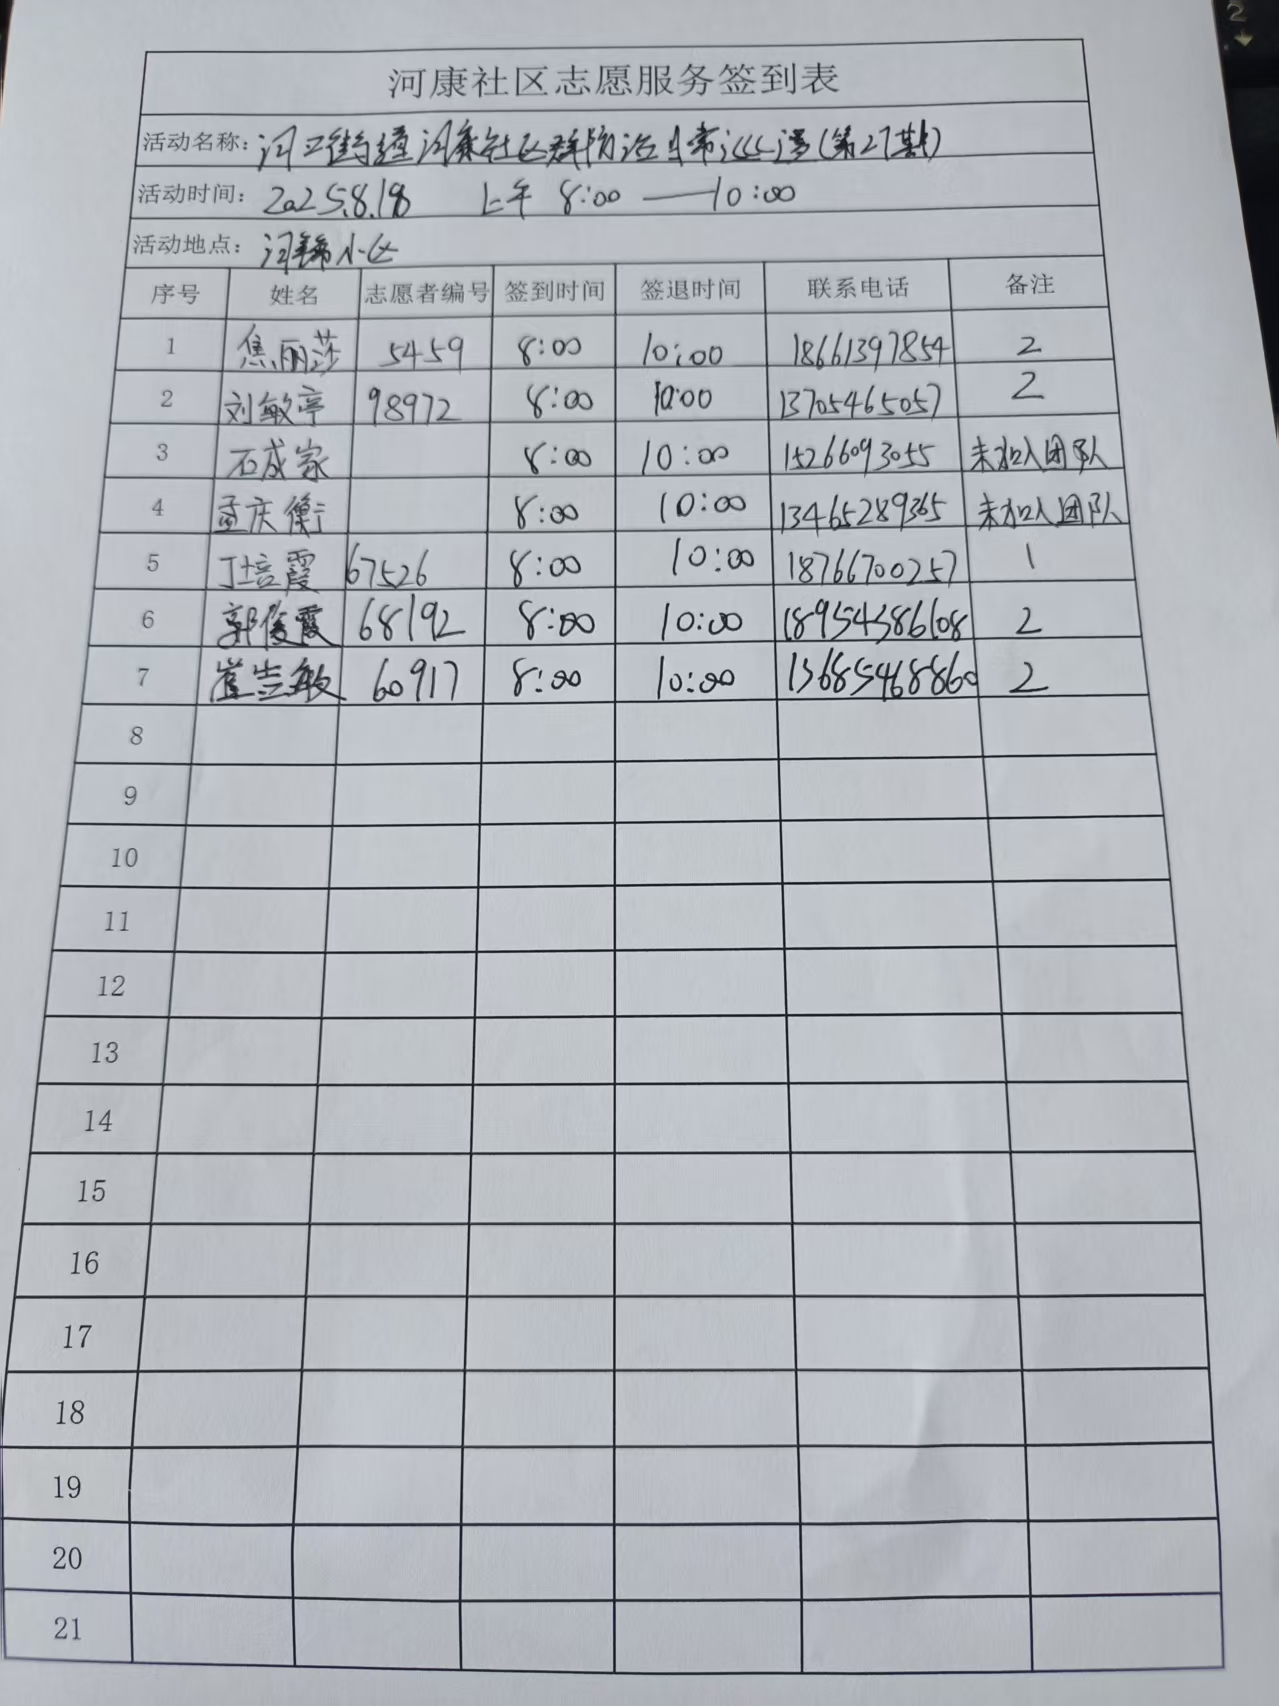 2
河康社区志愿服务签到表
活动名称: 河口街道河康社区群防群治日常巡逻(第27期)
活动时间: 2025.8.18 上午 8:00——10:00
活动地点: 河锦小区
序号 姓名 志愿者编号 签到时间 签退时间 联系电话 备注
1 焦丽莎 5459 8:00 10:00 18661397854 2
2 刘敏亭 98972 8:00 10:00 13705465057 2
3 石成家 8:00 10:00 15266093055 未加入团队
4 孟庆衡 8:00 10:00 13465289365 未加入团队
5 丁培霞 67526 8:00 10:00 18766700257 1
6 郭俊霞 68192 8:00 10:00 18954586608 2
7 崔兰敏 60917 8:00 10:00 13685468860 2
8
9
10
11
12
13
14
15
16
17
18
19
20
21